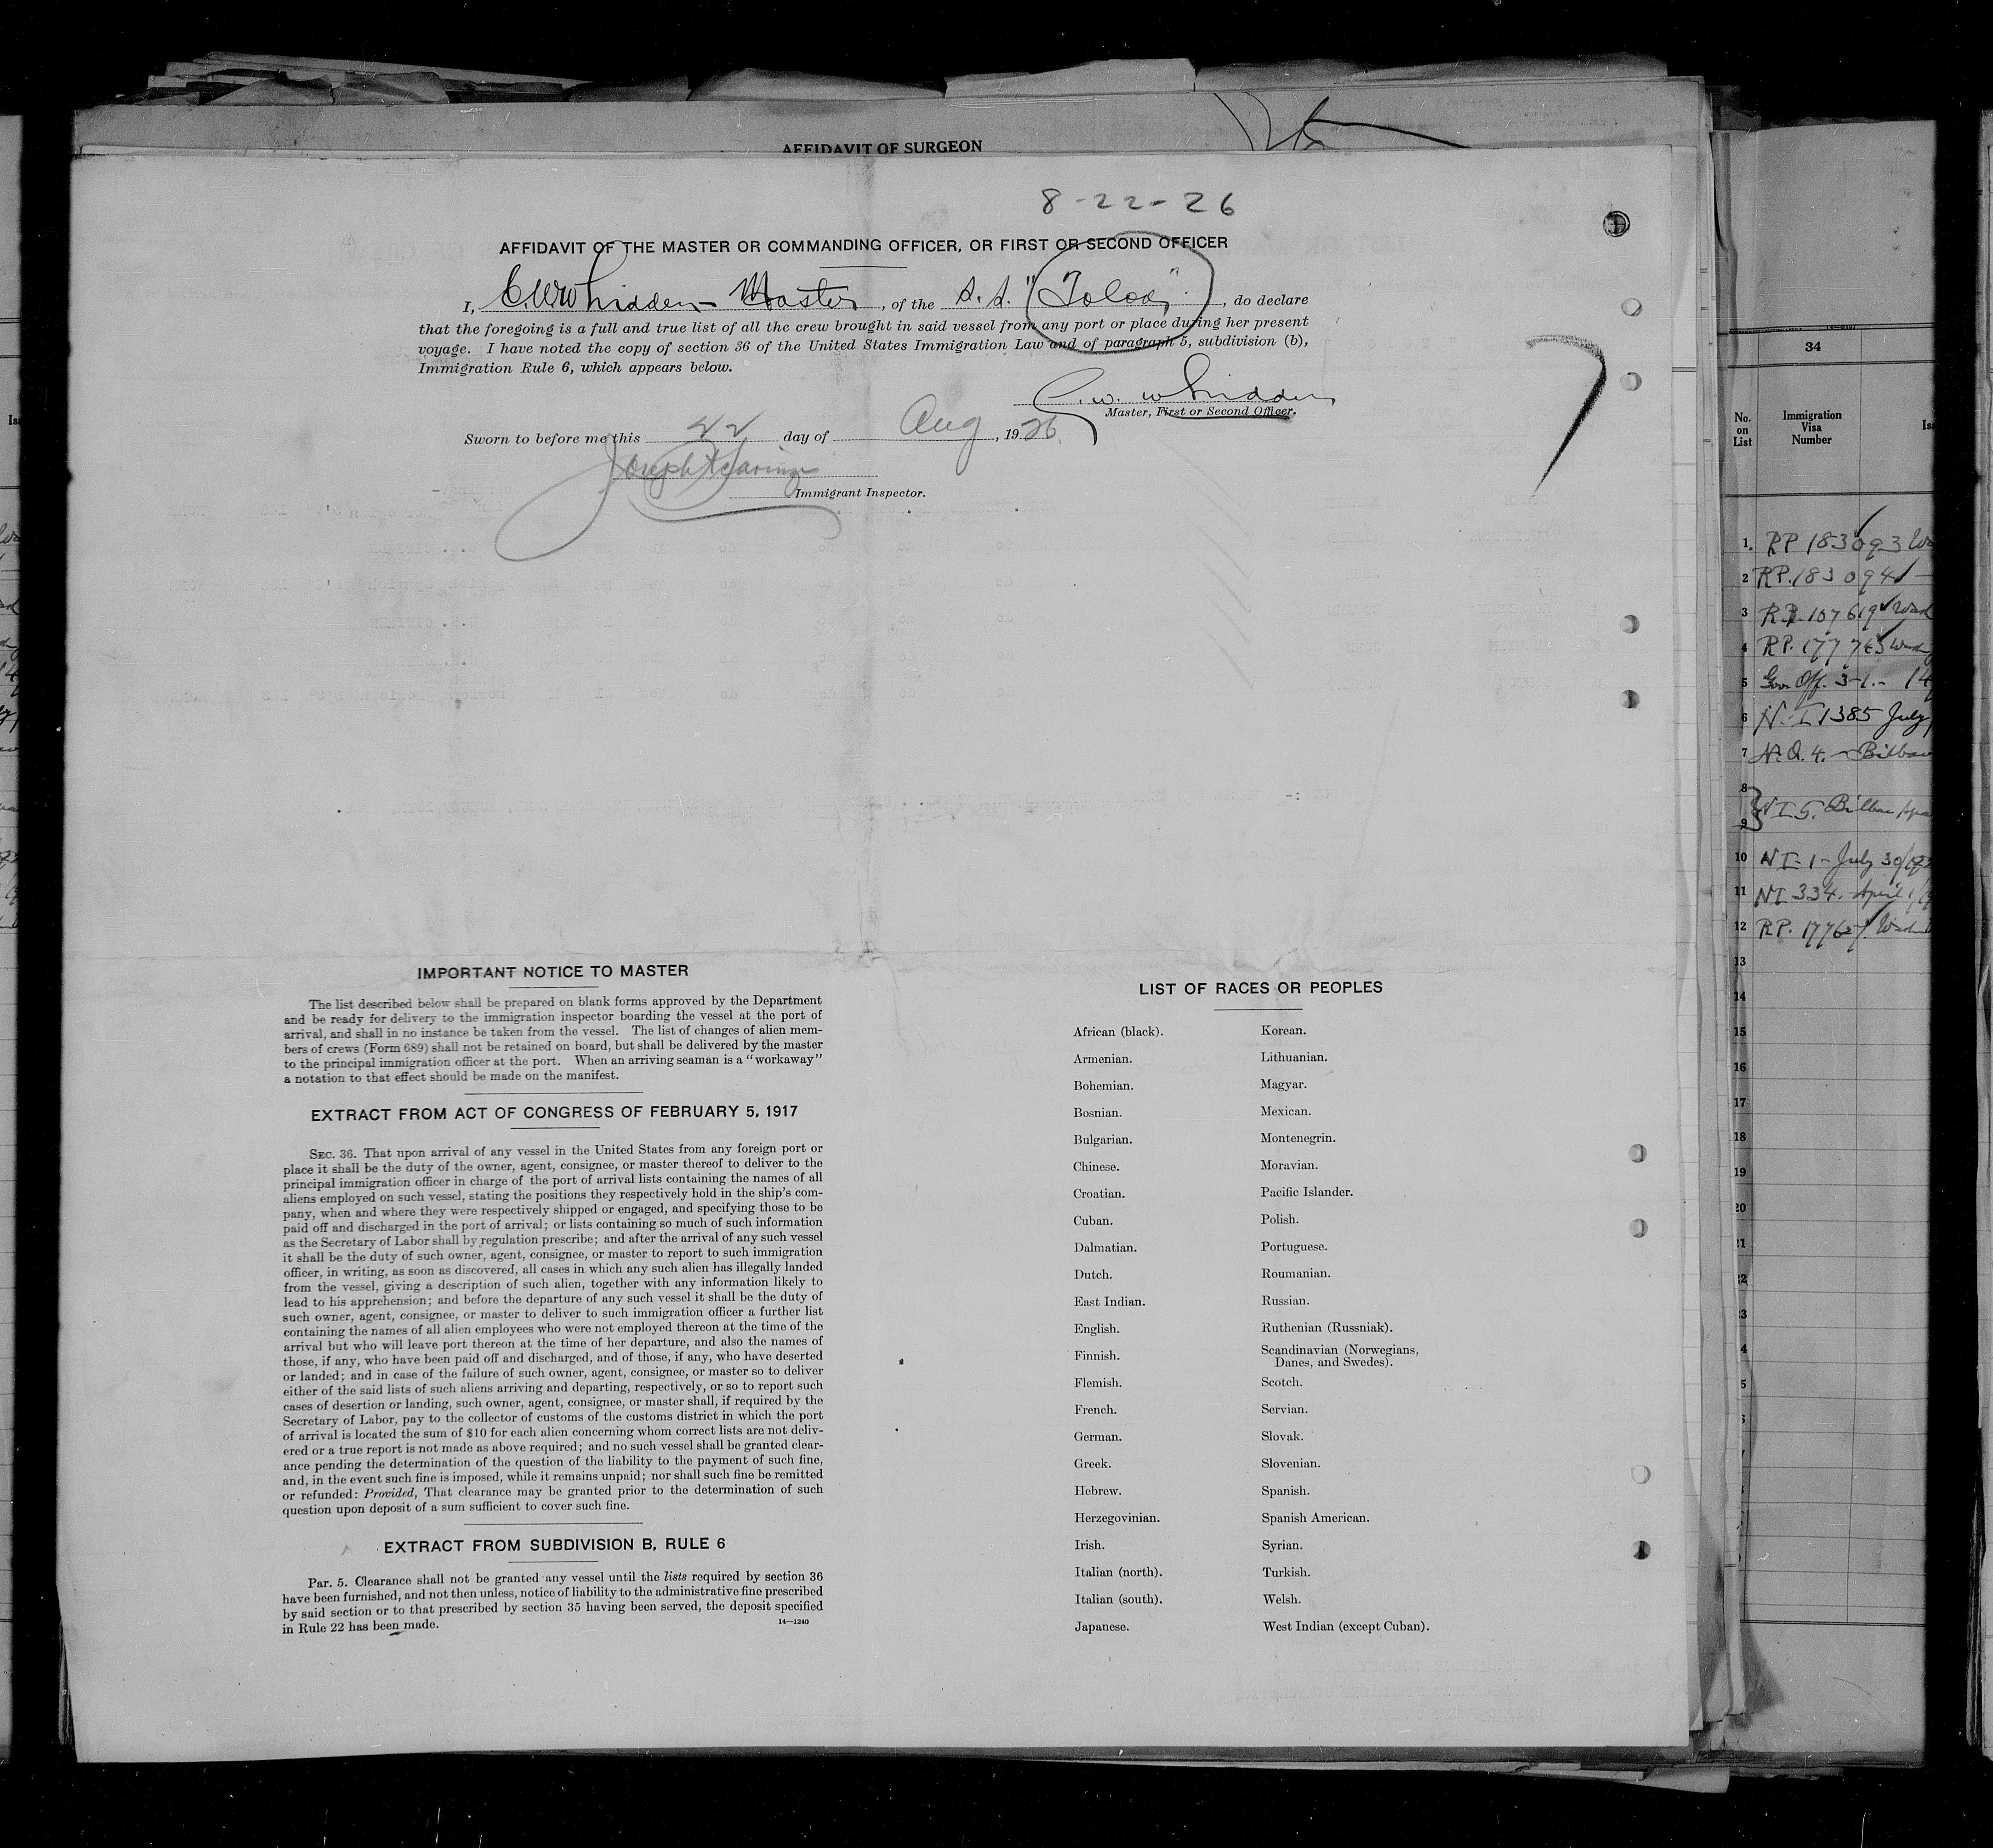 AFFIDAVIT OF SURGEON
8-22-26
AFFIDAVIT OF THE MASTER OR COMMANDING OFFICER, OR FIRST OR SECOND OFFICER
I, C. W. Whidden - Master, of the S.S. "Toloa", do declare
that the foregoing is a full and true list of all the crew brought in said vessel from any port or place during her present
voyage. I have noted the copy of section 36 of the United States Immigration Law and of paragraph 5, subdivision (b),
Immigration Rule 6, which appears below.
C. W. Whidden
Master, First or Second Officer.
Sworn to before me this 22 day of Aug, 1926.
Joseph
Immigrant Inspector.
7
IMPORTANT NOTICE TO MASTER
The list described below shall be prepared on blank forms approved by the Department
and be ready for delivery to the immigration inspector boarding the vessel at the port of
arrival, and shall in no instance be taken from the vessel. The list of changes of alien mem-
bers of crews (Form 689) shall not be retained on board, but shall be delivered by the master
to the principal immigration officer at the port. When an arriving seaman is a "workaway"
a notation to that effect should be made on the manifest.
EXTRACT FROM ACT OF CONGRESS OF FEBRUARY 5, 1917
SEC. 36. That upon arrival of any vessel in the United States from any foreign port or
place it shall be the duty of the owner, agent, consignee, or master thereof to deliver to the
principal immigration officer in charge of the port of arrival lists containing the names of all
aliens employed on such vessel, stating the positions they respectively hold in the ship's com-
pany, when and where they were respectively shipped or engaged, and specifying those to be
paid off and discharged in the port of arrival; or lists containing so much of such information
as the Secretary of Labor shall by regulation prescribe; and after the arrival of any such vessel
it shall be the duty of such owner, agent, consignee, or master to report to such immigration
officer, in writing, as soon as discovered, all cases in which any such alien has illegally landed
from the vessel, giving a description of such alien, together with any information likely to
lead to his apprehension; and before the departure of any such vessel it shall be the duty of
such owner, agent, consignee, or master to deliver to such immigration officer a further list
containing the names of all alien employees who were not employed thereon at the time of the
arrival but who will leave port thereon at the time of her departure, and also the names of
those, if any, who have been paid off and discharged, and of those, if any, who have deserted
or landed; and in case of the failure of such owner, agent, consignee, or master so to deliver
either of the said lists of such aliens arriving and departing, respectively, or so to report such
cases of desertion or landing, such owner, agent, consignee, or master shall, if required by the
Secretary of Labor, pay to the collector of customs of the customs district in which the port
of arrival is located the sum of $10 for each alien concerning whom correct lists are not deliv-
ered or a true report is not made as above required; and no such vessel shall be granted clear-
ance pending the determination of the question of the liability to the payment of such fine,
and, in the event such fine is imposed, while it remains unpaid; nor shall such fine be remitted
or refunded: Provided, That clearance may be granted prior to the determination of such
question upon deposit of a sum sufficient to cover such fine.
EXTRACT FROM SUBDIVISION B, RULE 6
Par. 5. Clearance shall not be granted any vessel until the lists required by section 36
have been furnished, and not then unless, notice of liability to the administrative fine prescribed
by said section or to that prescribed by section 35 having been served, the deposit specified
in Rule 22 has been made.
14—1240
LIST OF RACES OR PEOPLES
African (black).
Armenian.
Bohemian.
Bosnian.
Bulgarian.
Chinese.
Croatian.
Cuban.
Dalmatian.
Dutch.
East Indian.
English.
Finnish.
Flemish.
French.
German.
Greek.
Hebrew.
Herzegovinian.
Irish.
Italian (north).
Italian (south).
Japanese.
Korean.
Lithuanian.
Magyar.
Mexican.
Montenegrin.
Moravian.
Pacific Islander.
Polish.
Portuguese.
Roumanian.
Russian.
Ruthenian (Russniak).
Scandinavian (Norwegians,
Danes, and Swedes).
Scotch.
Servian.
Slovak.
Slovenian.
Spanish.
Spanish American.
Syrian.
Turkish.
Welsh.
West Indian (except Cuban).
34
No.
on
List
Immigration
Visa
Number
1. RP 183093
2 RP. 183094 -
3 RP. 107619
4 RP.
5 Gov Off. 3-1.-
6 N.I 1385 July
7 Bilbao
8
9 NI 5. Bilbao
10 NI-1- July 30
11 NI 334. April
12 RP.
13
14
15
16
17
18
19
20
21
22